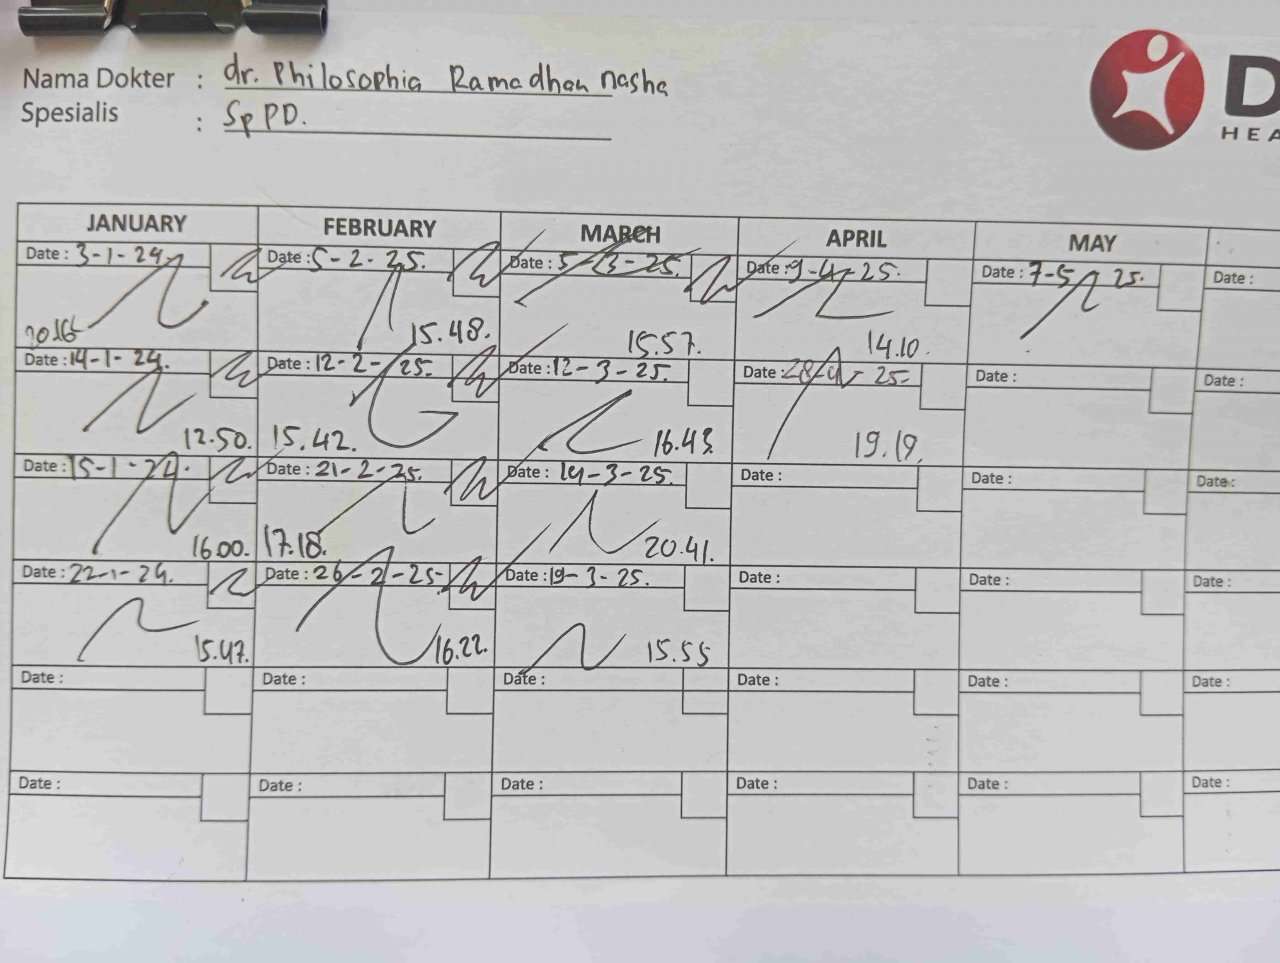 Nama Dokter : dr. Philosophia Ramadhan nasha
Spesialis : Sp PD.
D
HEA
JANUARY FEBRUARY MARCH APRIL MAY
Date : 3-1-24. Date : 5-2-25. Date : 5-3-25. Date : 9-4-25. Date : 7-5-25. Date :
15.48. 15.57. 14.10.
Date : 14-1-24. Date : 12-2-25. Date : 12-3-25. Date : 28-4-25. Date : Date :
12.50. 15.42. 16.43. 19.19.
Date : 15-1-24. Date : 21-2-25. Date : 14-3-25. Date : Date : Date :
16.00. 17.18. 20.41.
Date : 22-1-24. Date : 26-2-25. Date : 19-3-25. Date : Date : Date :
15.47. 16.22. 15.55
Date : Date : Date : Date : Date : Date :
Date : Date : Date : Date : Date : Date :